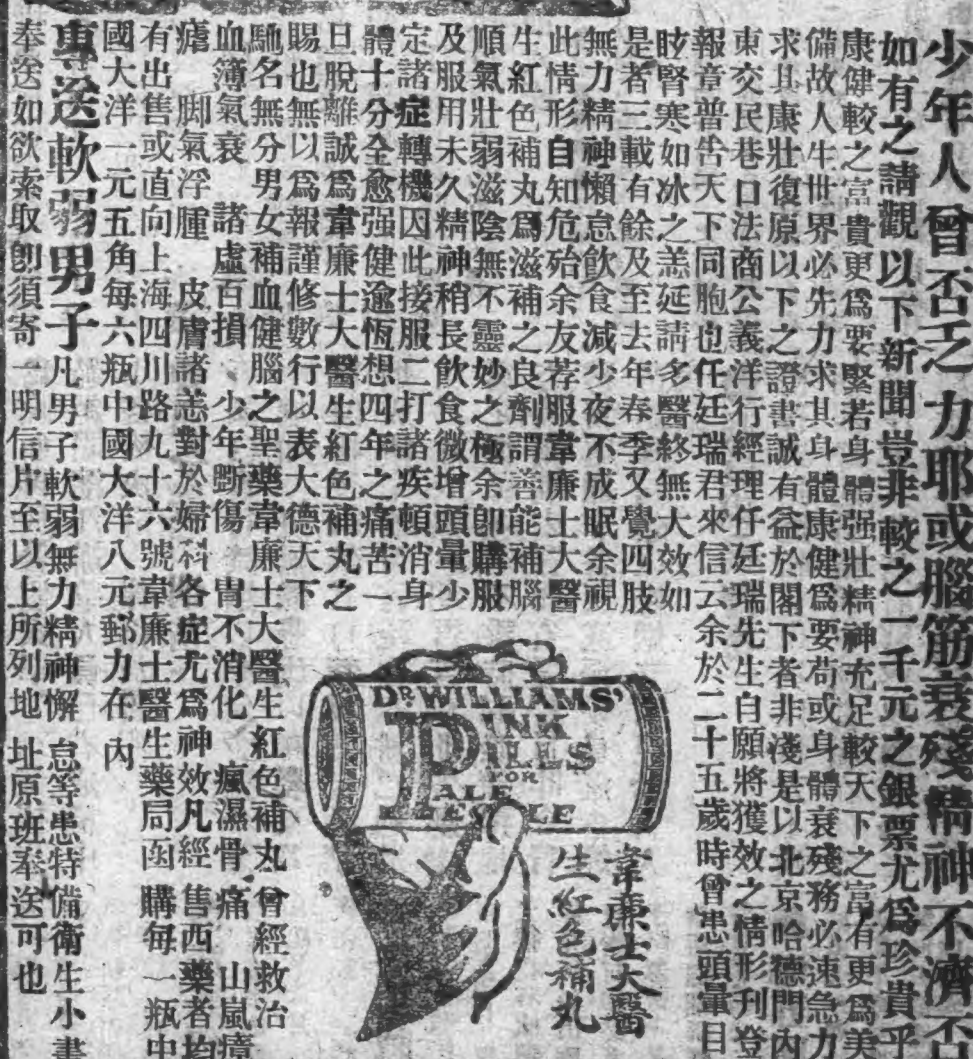 少年人曾否乏力耶或腦筋衰殘精神不濟否
如有之請觀以下新聞豈非較之一千元之銀票尤爲珍貴乎
康健較之富貴更爲要緊若身體强壯精神充足較天下之富有更爲美
備故人生世界必先力求其身體康健爲要苟或身體衰殘務必速急力
求其康壯復原以下之證書誠有益於閣下者非淺是以北京哈德門內
東交民巷口法商公義洋行經理任廷瑞先生自願將獲效之情形刊登
報章普告天下同胞也任廷瑞君來信云余於二十五歲時曾患頭暈目
眩腎寒如冰之恙延請多醫終無大效如
是者三載有餘及至去年春季又覺四肢
無力精神懶怠飲食減少夜不成眠余視
此情形自知危殆余友荐服韋廉士大醫
生紅色補丸爲滋補之良劑謂善能補腦
順氣壯弱滋陰無不靈妙之極余卽購服
及服用未久精神稍長飲食微增頭暈少
定諸症轉機因此接服二打諸疾頓消身
體十分全愈强健逾恆想四年之痛苦一
旦脫離誠爲韋廉士大醫生紅色補丸之
賜也無以爲報謹修數行以表大德天下
馳名無分男女補血健腦之聖藥韋廉士大醫生紅色補丸曾經救治
血薄氣衰 諸虛百損 少年斷傷 胃不消化 瘋濕骨痛 山嵐瘴
瘧 脚氣浮腫 皮膚諸恙對於婦科各症尤爲神效凡經售西藥者均
有出售或直向上海四川路九十六號韋廉士醫生藥局函購每一瓶中
國大洋一元五角每六瓶中國大洋八元郵力在內
專送軟弱男子凡男子軟弱無力精神懈怠等患特備衛生小書
奉送如欲索取卽須寄一明信片至以上所列地址原班奉送可也
DR WILLIAMS'
PINK
PILLS
FOR
PALE
PEOPLE
韋廉士大醫
生紅色補丸